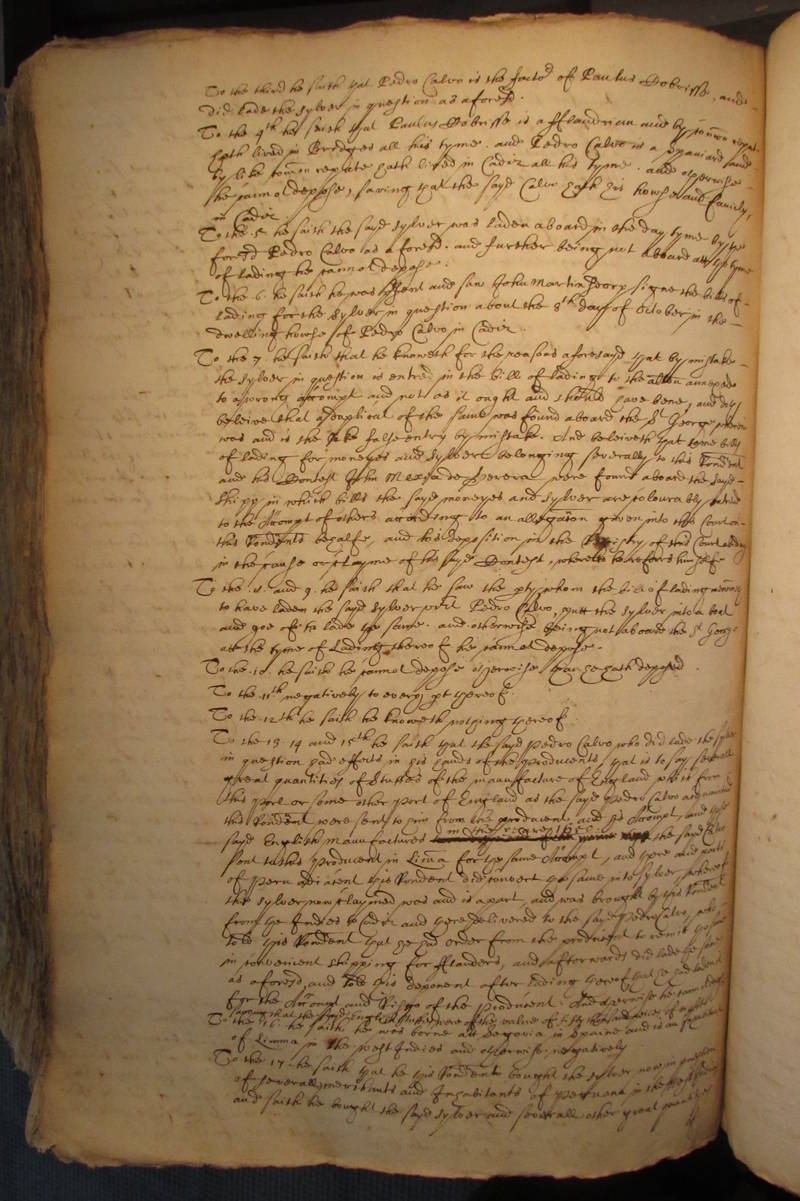 To the third he saith that Pedro Calvo is the factor of Paulus Dobrisse, and
did lade the sylver in question as aforesd.
To the 4th he saith that Paulus Dobrisse is a fflandrian and by common repute
hath lived in Bridges all his tyme. and Pedro Calvo is a Spaniard and
by like common repute hath lived in Cadiz all his tyme. and otherwise
he cannot depose, saving that the sayd Calvo hath his howse and family
in Cadiz.
To the 5. he saith the sayd sylver was laden aboard in the day tyme by the
foresd Pedro Calvo as aforesd. and further being not aboard att the tyme
of lading he cannot depose.
To the 6. he saith he was present and saw John Martin signe the bills of
lading for the sylver in question about the 8th day of October in the
dwelling howse of Pedro Calvo in Cadiz.
To the 7. he saith that he knoweth for the reasons aforesayd that by mistake
the sylver in question is entred in the bill of lading to the allon annexed
to a wrong accompt and not as it ought and should have bene, and doth
beleive that a duplicat of the same was found aboard the St George wherein
was and is the like false entry by mistake. And beleiveth that some bills
of lading for moneyes and sylver belonging severally to this Rendent
and his Contest John Meza de Herera were found aboard the sayd
shipp in which bills the sayd moneyes and sylver are colourably entred
to the Accompt of others according to an allegation given into this Court on
this Rendents behalfe, and his deposition in the Registry of this Court
in the cause or clayme of his sayd Contest, whereto he referrs himselfe
To the .8. and 9. he saith that he saw the pty whom the bill of lading
to have laden the sayd sylver vizt Pedro Calvo, putt the sylver into a boat
and goe of to lade the same. and otherwise being not aboard the St George
att the tyme of Lading thereof he cannot depose.
To the .10. he saith he cannot depose otherwise than he hath deposed.
To the 11th negatively to every pt thereof.
To the .12th he saith he knoweth nothing thereof.
To the 13 14 and 15th he saith that the sayd Pedro Calvo who did lade the sylver
in question had effects in his hands of the producents, that is to say severall
great quantities of Stuffes of the manufacture of England which from
this Port or some other Port of England as the sayd Pedro Calvo acquainted
this Rendent were sent to him from the producent and his Accompt, and
sayd English manufactures in the yeare 1650 the sayd Calvo
sent to this Producent in Lima for the same Accompt, and there and parts
of Peru adjacent this Rendent did convert the same into sylver, whereof
the sylver now claymed was and is a part, and was brought by this Rendent
from the Indies to Cadiz and there delivered to the sayd Pedro Calvo, who
told this Rendent that he had order from the producent to remit the same
in convenient shipping for fflanders, and afterwards did lade the same
as aforesd, and told this deponent after lading thereof that he had laden it
for the Accompt and Risgo of the Producent. And otherwise he cannot depose
saving that the sayd English stuffes were of the value of fifty thousand peices of eight
To the 16. he saith he was borne att Segovia in Spaine and is an Inhabitant
of Limma in the West Indies and otherwise negatively
To the 17. he saith that he this Rendent bought the sylver now in question
of severall merchants and Inhabitants of Peruana in the West Indies
and saith he bought the sayd sylver and severall other great quantities